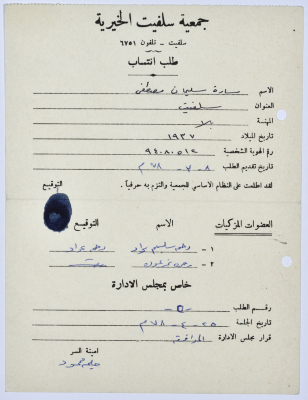 جمعية سلفيت الخيرية
سلفيت - تلفون ٦٧٥١
طلب انتساب
الاسم سارة سليمان مصطفى
العنوان سلفيت
المهنة بلا
تاريخ الميلاد ١٩٣٧
رقم الهوية الشخصية ٩٤٠٨٠٥١٢
تاريخ تقديم الطلب ٨-٧-٧٨م
لقد اطلعت على النظام الأساسي للجمعية والتزم به حرفياً. التوقيع
العضوات المزكيات الاسم التوقيع
١ -
٢ -
خاص بمجلس الادارة
رقم الطلب ٥
تاريخ الجلسة ٢٥-٤-٧٨م
قرار مجلس الادارة الموافقة
امينة السر